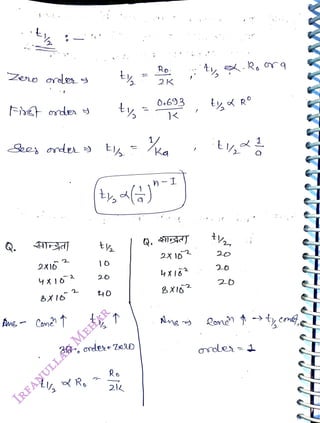 t½ :-
Zero order ⇒ t½ = R₀/2K , t½ ∝ R₀ or a
First order ⇒ t½ = 0.693/K , t½ ∝ R⁰
Sec; order ⇒ t½ = 1/Ka , t½ ∝ 1/a
t½ ∝ (1/a)ⁿ⁻¹
Q. सान्द्रता t½
2×10⁻² 10
4×10⁻² 20
8×10⁻² 40
Ans - Concⁿ ↑ t½ ↑
अतः order = zero
t½ ∝ R₀ = R₀/2K
Q. सान्द्रता t½
2×10⁻² 20
4×10⁻² 20
8×10⁻² 20
Ans ⇒ Concⁿ ↑ → t½ const.
order = 1
IRFANULLAH MEHAR